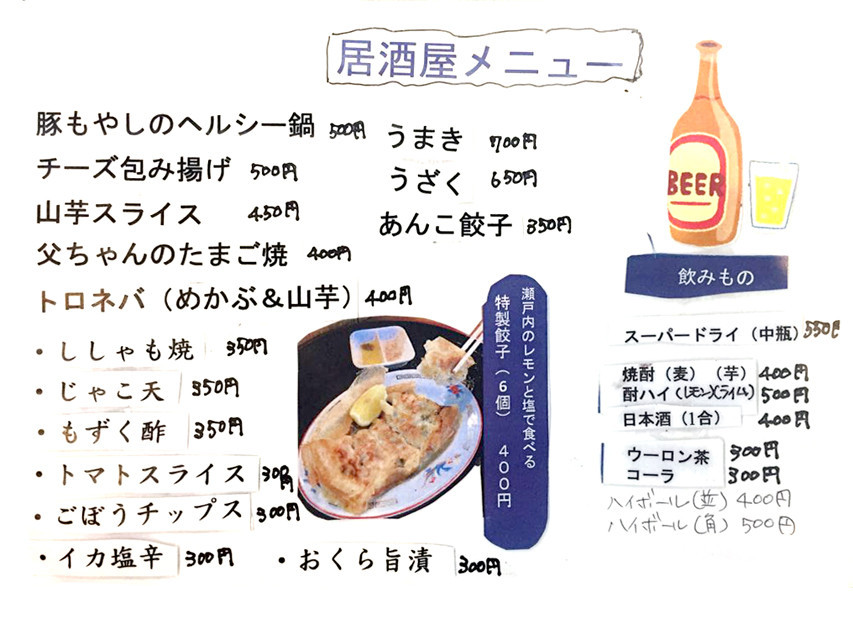 居酒屋メニュー
豚もやしのヘルシー鍋 500円
チーズ包み揚げ 500円
山芋スライス 450円
父ちゃんのたまご焼 400円
トロネバ（めかぶ＆山芋） 400円
・ししゃも焼 350円
・じゃこ天 350円
・もずく酢 350円
・トマトスライス 300円
・ごぼうチップス 300円
・イカ塩辛 300円
・おくら旨漬 300円
うまき 700円
うざく 650円
あんこ餃子 350円
瀬戸内のレモンと塩で食べる
特製餃子（6個） 400円
BEER
飲みもの
スーパードライ（中瓶） 550円
焼酎（麦）（芋） 400円
酎ハイ（レモン）（ライム） 500円
日本酒（1合） 400円
ウーロン茶 300円
コーラ 300円
ハイボール（並） 400円
ハイボール（角） 500円